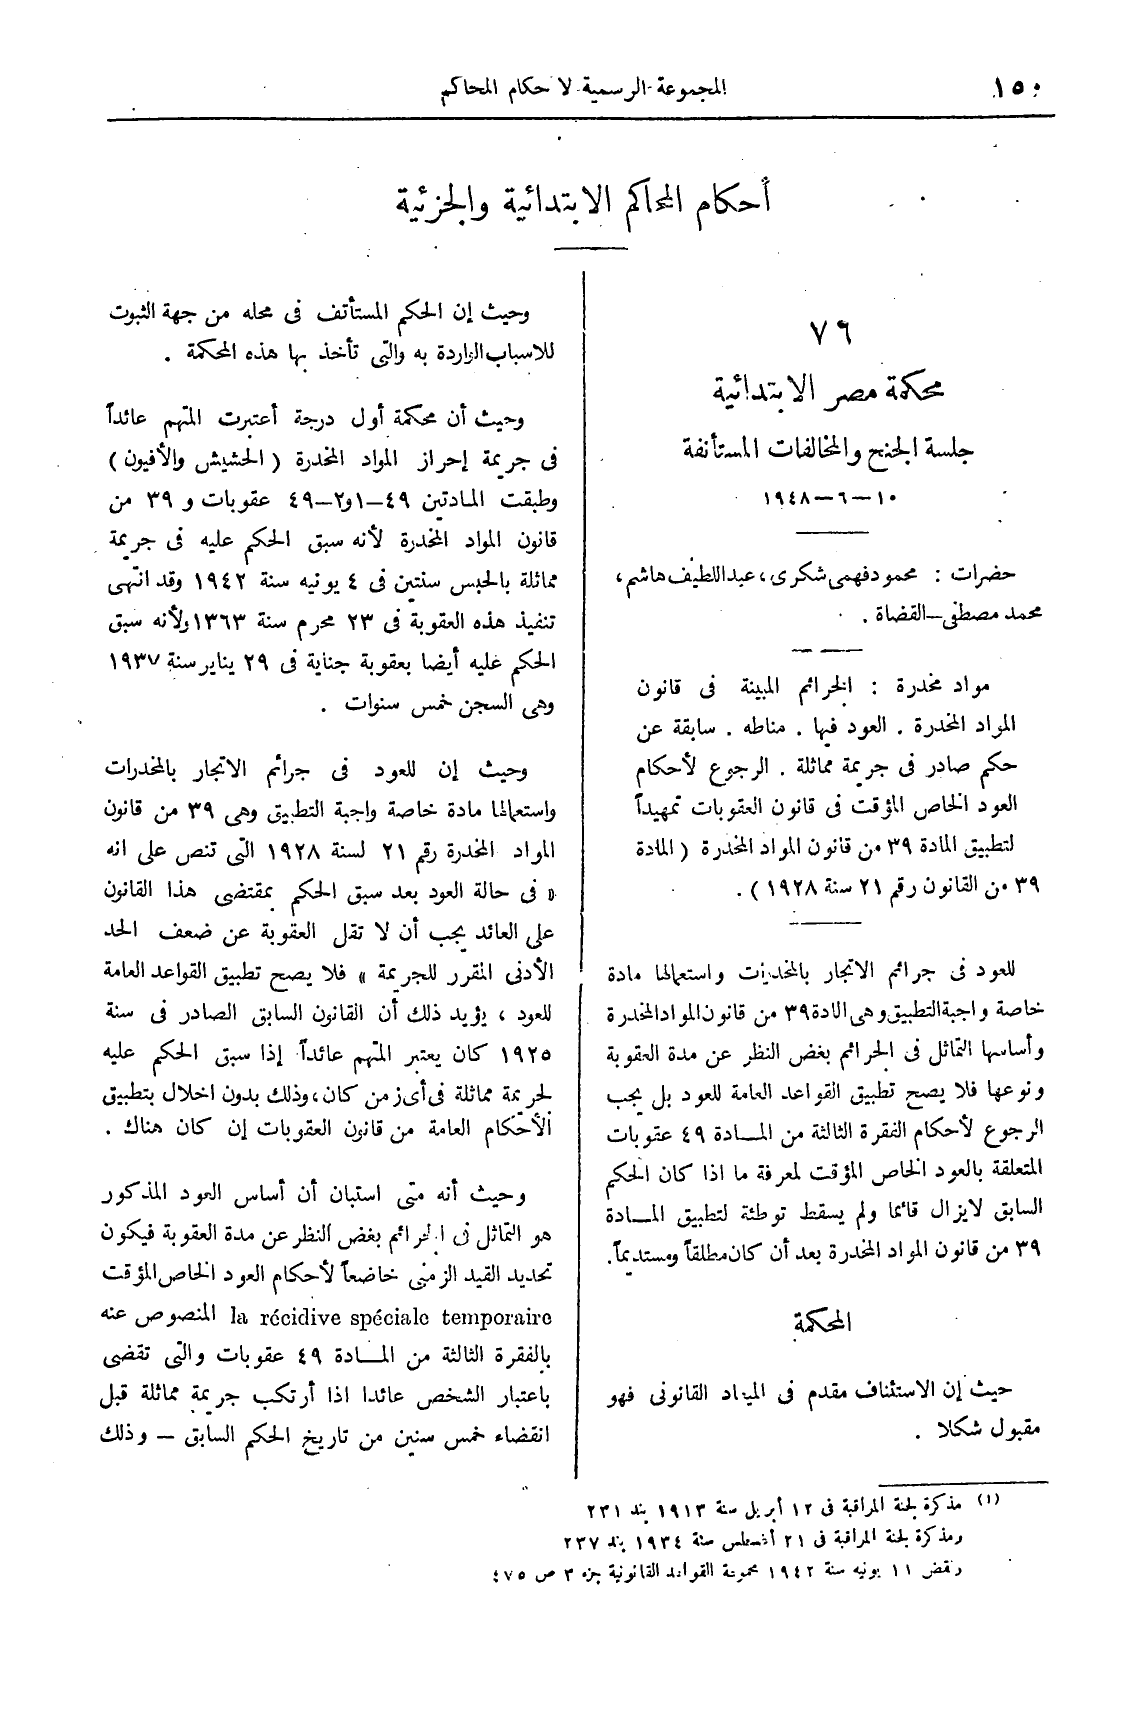 ١٥٠
المجموعة الرسمية لأحكام المحاكم
أحكام المحاكم الابتدائية والجزئية
٧٦
محكمة مصر الابتدائية
جلسة الجنح والمخالفات المستأنفة
١٠ – ٦ – ١٩٤٨
حضرات : محمود فهمى شكرى ، عبد اللطيف هاشم ،
محمد مصطفى – القضاة .
مواد مخدرة : الجرائم المبينة فى قانون
المواد المخدرة . العود فيها . مناطه . سابقة عن
حكم صادر فى جريمة مماثلة . الرجوع لأحكام
العود الخاص المؤقت فى قانون العقوبات تمهيداً
لتطبيق المادة ٣٩ من قانون المواد المخدرة ( المادة
٣٩ من القانون رقم ٢١ سنة ١٩٢٨ ) .
للعود فى جرائم الاتجار بالمخدرات واستعمالها مادة
خاصة واجبة التطبيق وهى المادة ٣٩ من قانون المواد المخدرة
وأساسها التماثل فى الجرائم بغض النظر عن مدة العقوبة
ونوعها فلا يصح تطبيق القواعد العامة للعود بل يجب
الرجوع لأحكام الفقرة الثالثة من المــادة ٤٩ عقوبات
المتعلقة بالعود الخاص المؤقت لمعرفة ما اذا كان الحكم
السابق لايزال قائما ولم يسقط توطئة لتطبيق المــادة
٣٩ من قانون المواد المخدرة بعد أن كان مطلقاً ومستديماً.
المحكمة
حيث إن الاستئناف مقدم فى الميعاد القانونى فهو
مقبول شكلا .
وحيث إن الحكم المستأنف فى محله من جهة الثبوت
للاسباب الواردة به والتى تأخذ بها هذه المحكمة .
وحيث أن محكمة أول درجة أعتبرت المتهم عائداً
فى جريمة إحراز المواد المخدرة ( الحشيش والأفيون )
وطبقت المادتين ٤٩–١و٢–٤٩ عقوبات و ٣٩ من
قانون المواد المخدرة لأنه سبق الحكم عليه فى جريمة
مماثلة بالحبس سنتين فى ٤ يونيه سنة ١٩٤٢ وقد انتهى
تنفيذ هذه العقوبة فى ٢٣ محرم سنة ١٣٦٣ ولأنه سبق
الحكم عليه أيضا بعقوبة جناية فى ٢٩ يناير سنة ١٩٣٧
وهى السجن خمس سنوات .
وحيث إن للعود فى جرائم الاتجار بالمخدرات
واستعمالها مادة خاصة واجبة التطبيق وهى ٣٩ من قانون
المواد المخدرة رقم ٢١ لسنة ١٩٢٨ التى تنص على انه
« فى حالة العود بعد سبق الحكم بمقتضى هذا القانون
على العائد يجب أن لا تقل العقوبة عن ضعف الحد
الأدنى المقرر للجريمة » فلا يصح تطبيق القواعد العامة
للعود ، يؤيد ذلك أن القانون السابق الصادر فى سنة
١٩٢٥ كان يعتبر المتهم عائداً إذا سبق الحكم عليه
لجريمة مماثلة فى أى زمن كان ، وذلك بدون اخلال بتطبيق
الأحكام العامة من قانون العقوبات إن كان هناك .
وحيث أنه متى استبان أن أساس العود المذكور
هو التماثل فى الجرائم بغض النظر عن مدة العقوبة فيكون
تحديد القيد الزمنى خاضعاً لأحكام العود الخاص المؤقت
la récidive spéciale temporaire المنصوص عنه
بالفقرة الثالثة من المــادة ٤٩ عقوبات والتى تقضى
باعتبار الشخص عائدا اذا أرتكب جريمة مماثلة قبل
انقضاء خمس سنين من تاريخ الحكم السابق – وذلك
(١) مذكرة لجنة المراقبة فى ١٢ أبريل سنة ١٩١٣ بند ٢٣١
ومذكرة لجنة المراقبة فى ٢١ أغسطس سنة ١٩٣٤ بند ٢٣٧
ونقض ١١ يونيه سنة ١٩٤٢ مجموعة القواعد القانونية جزء ٣ ص ٤٧٥